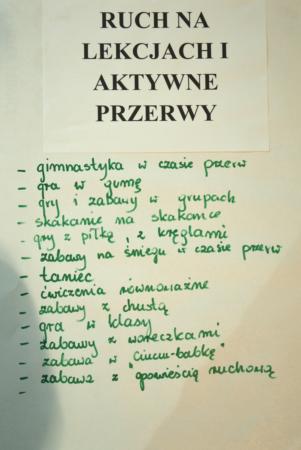 RUCH NA
LEKCJACH I
AKTYWNE
PRZERWY
- gimnastyka w czasie przerw
- gra w gumę
- gry i zabawy w grupach
- skakanie na skakance
- gry z piłką, z kręglami
- zabawy na śniegu w czasie przerw
- taniec
- ćwiczenia równoważne
- zabawy z chustą
- gra w klasy
- zabawy z woreczkami
- zabawa w "ciuciu-babkę"
- zabawa z "opowieścią ruchową"
-